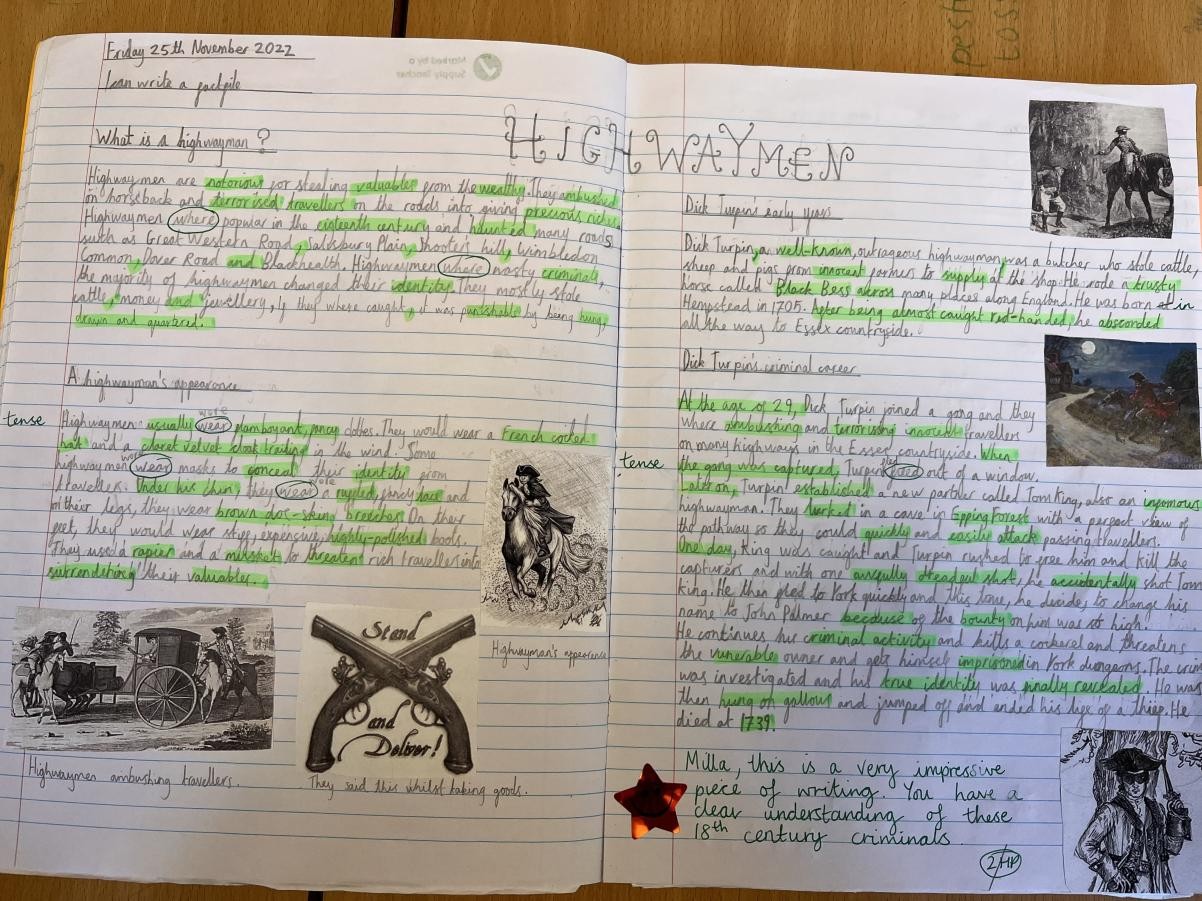 Friday 25th November 2022
I can write a factfile
Marked by a
Supply Teacher
HIGHWAYMEN
What is a highwayman?
Highwaymen are notorious for stealing valuables from the wealthy. They ambushed
on horseback and terrorised travellers on the roads into giving precious riches.
Highwaymen where popular in the eighteenth century and haunted many roads
such as Great Western Road, Saldsbury Plain, Shooters hill, Wimbledon
Common, Dover Road and Blackheath. Highwaymen where nasty criminals,
the majority of highwaymen changed their identity. They mostly stole
cattle, money and jewellery, if they where caught, it was punishable by being hung,
drawn and quartered.
A highwayman's appearence
were
tense
Highwaymen usually wear flamboyant, fancy clothes. They would wear a French cocked
hat and a claret velvet cloak trailing in the wind. Some
wore
highwaymen wear masks to conceal their identity from
wore
travellers. Under his chin, they wear a ruffled, fancy lace and
on their legs, they wear brown doe-skin breeches. On their
feet, they would wear stiff, expensive, highly-polished boots.
They used a rapier and a musket to threaten rich travellers into
surrendering their valuables.
Highwayman's appearence
Highwaymen ambushing travellers.
Stand
and
Deliver!
They said this whilst taking goods.
Dick Turpin's early years
Dick Turpin, a well-known, outrageous highwayman, was a butcher who stole cattle,
sheep and pigs from innocent farmers to supply at the shop. He rode a trusty
horse called Black Bess across many places along England. He was born in
Hempstead in 1705. After being almost caught red-handed, he abscorded
all the way to Essex countryside.
Dick Turpin's criminal career
At the age of 29, Dick Turpin joined a gang and they
where ambushing and terrorising innocent travellers
on many highways in the Essex countryside. When
tense
the gang was captured, Turpin out of a window.
Later on, Turpin established a new partner called Tom King, also an infomous
highwayman. They lurked in a cave in Epping Forest with a perfect view of
the pathway so they could quickly and easily attack passing travellers.
One day, King was caught and Turpin rushed to free him and kill the
capturers and with one awfully dreadful shot, he accidentally shot Tom
King. He then fled to York quickly and this time, he decides to change his
name to John Palmer because of the bounty on him was so high.
He continues his criminal activity and kills a cockerel and threatens
the vunerable owner and gets himself imprisoned in York dungeons. The crime
was investigated and his true identity was finally revealed. He was
then hung on gallows and jumped off and ended his life of a thief. He
died at 1739.
Milla, this is a very impressive
piece of writing. You have a
clear understanding of these
18th century criminals.
2HP